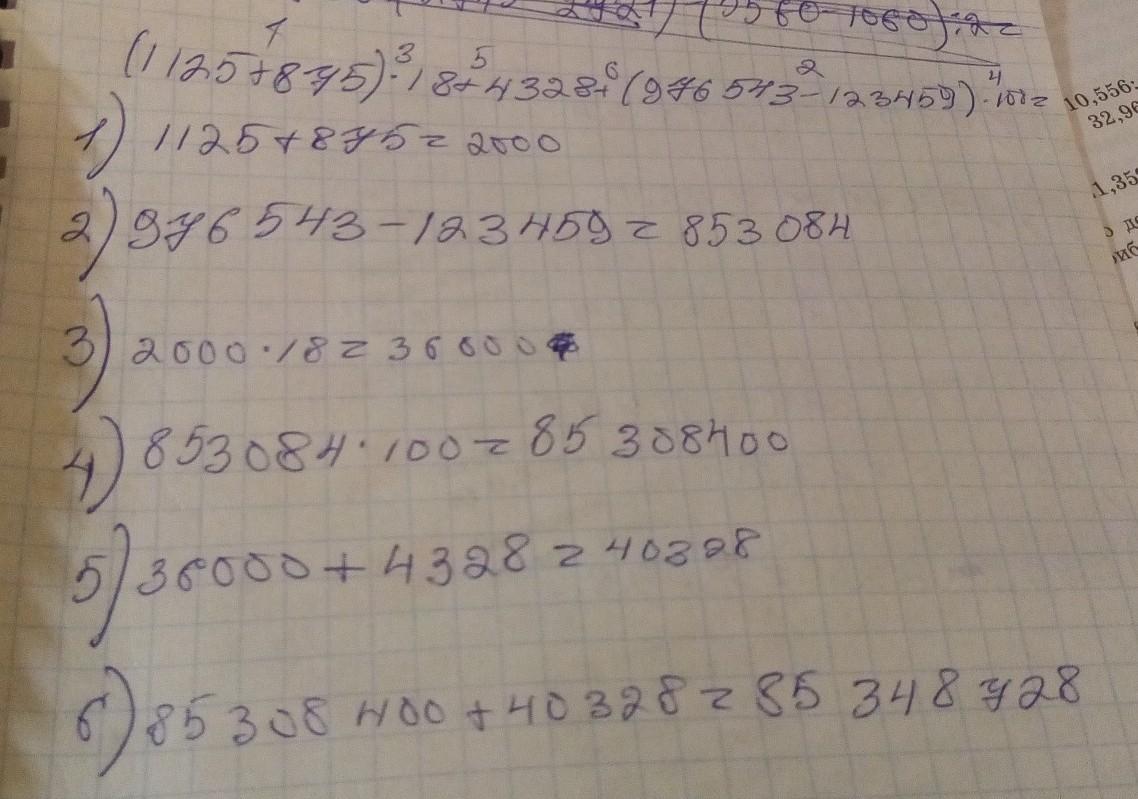 (1125+875)·18+4328+(976543-123459)·100=
1) 1125+875=2000
2) 976 543-123459=853 084
3) 2000·18=36000
4) 853084·100=85 308400
5) 36000+4328=40328
6) 85 308 400+40328=85 348 728
10,556:
32,96
1,35